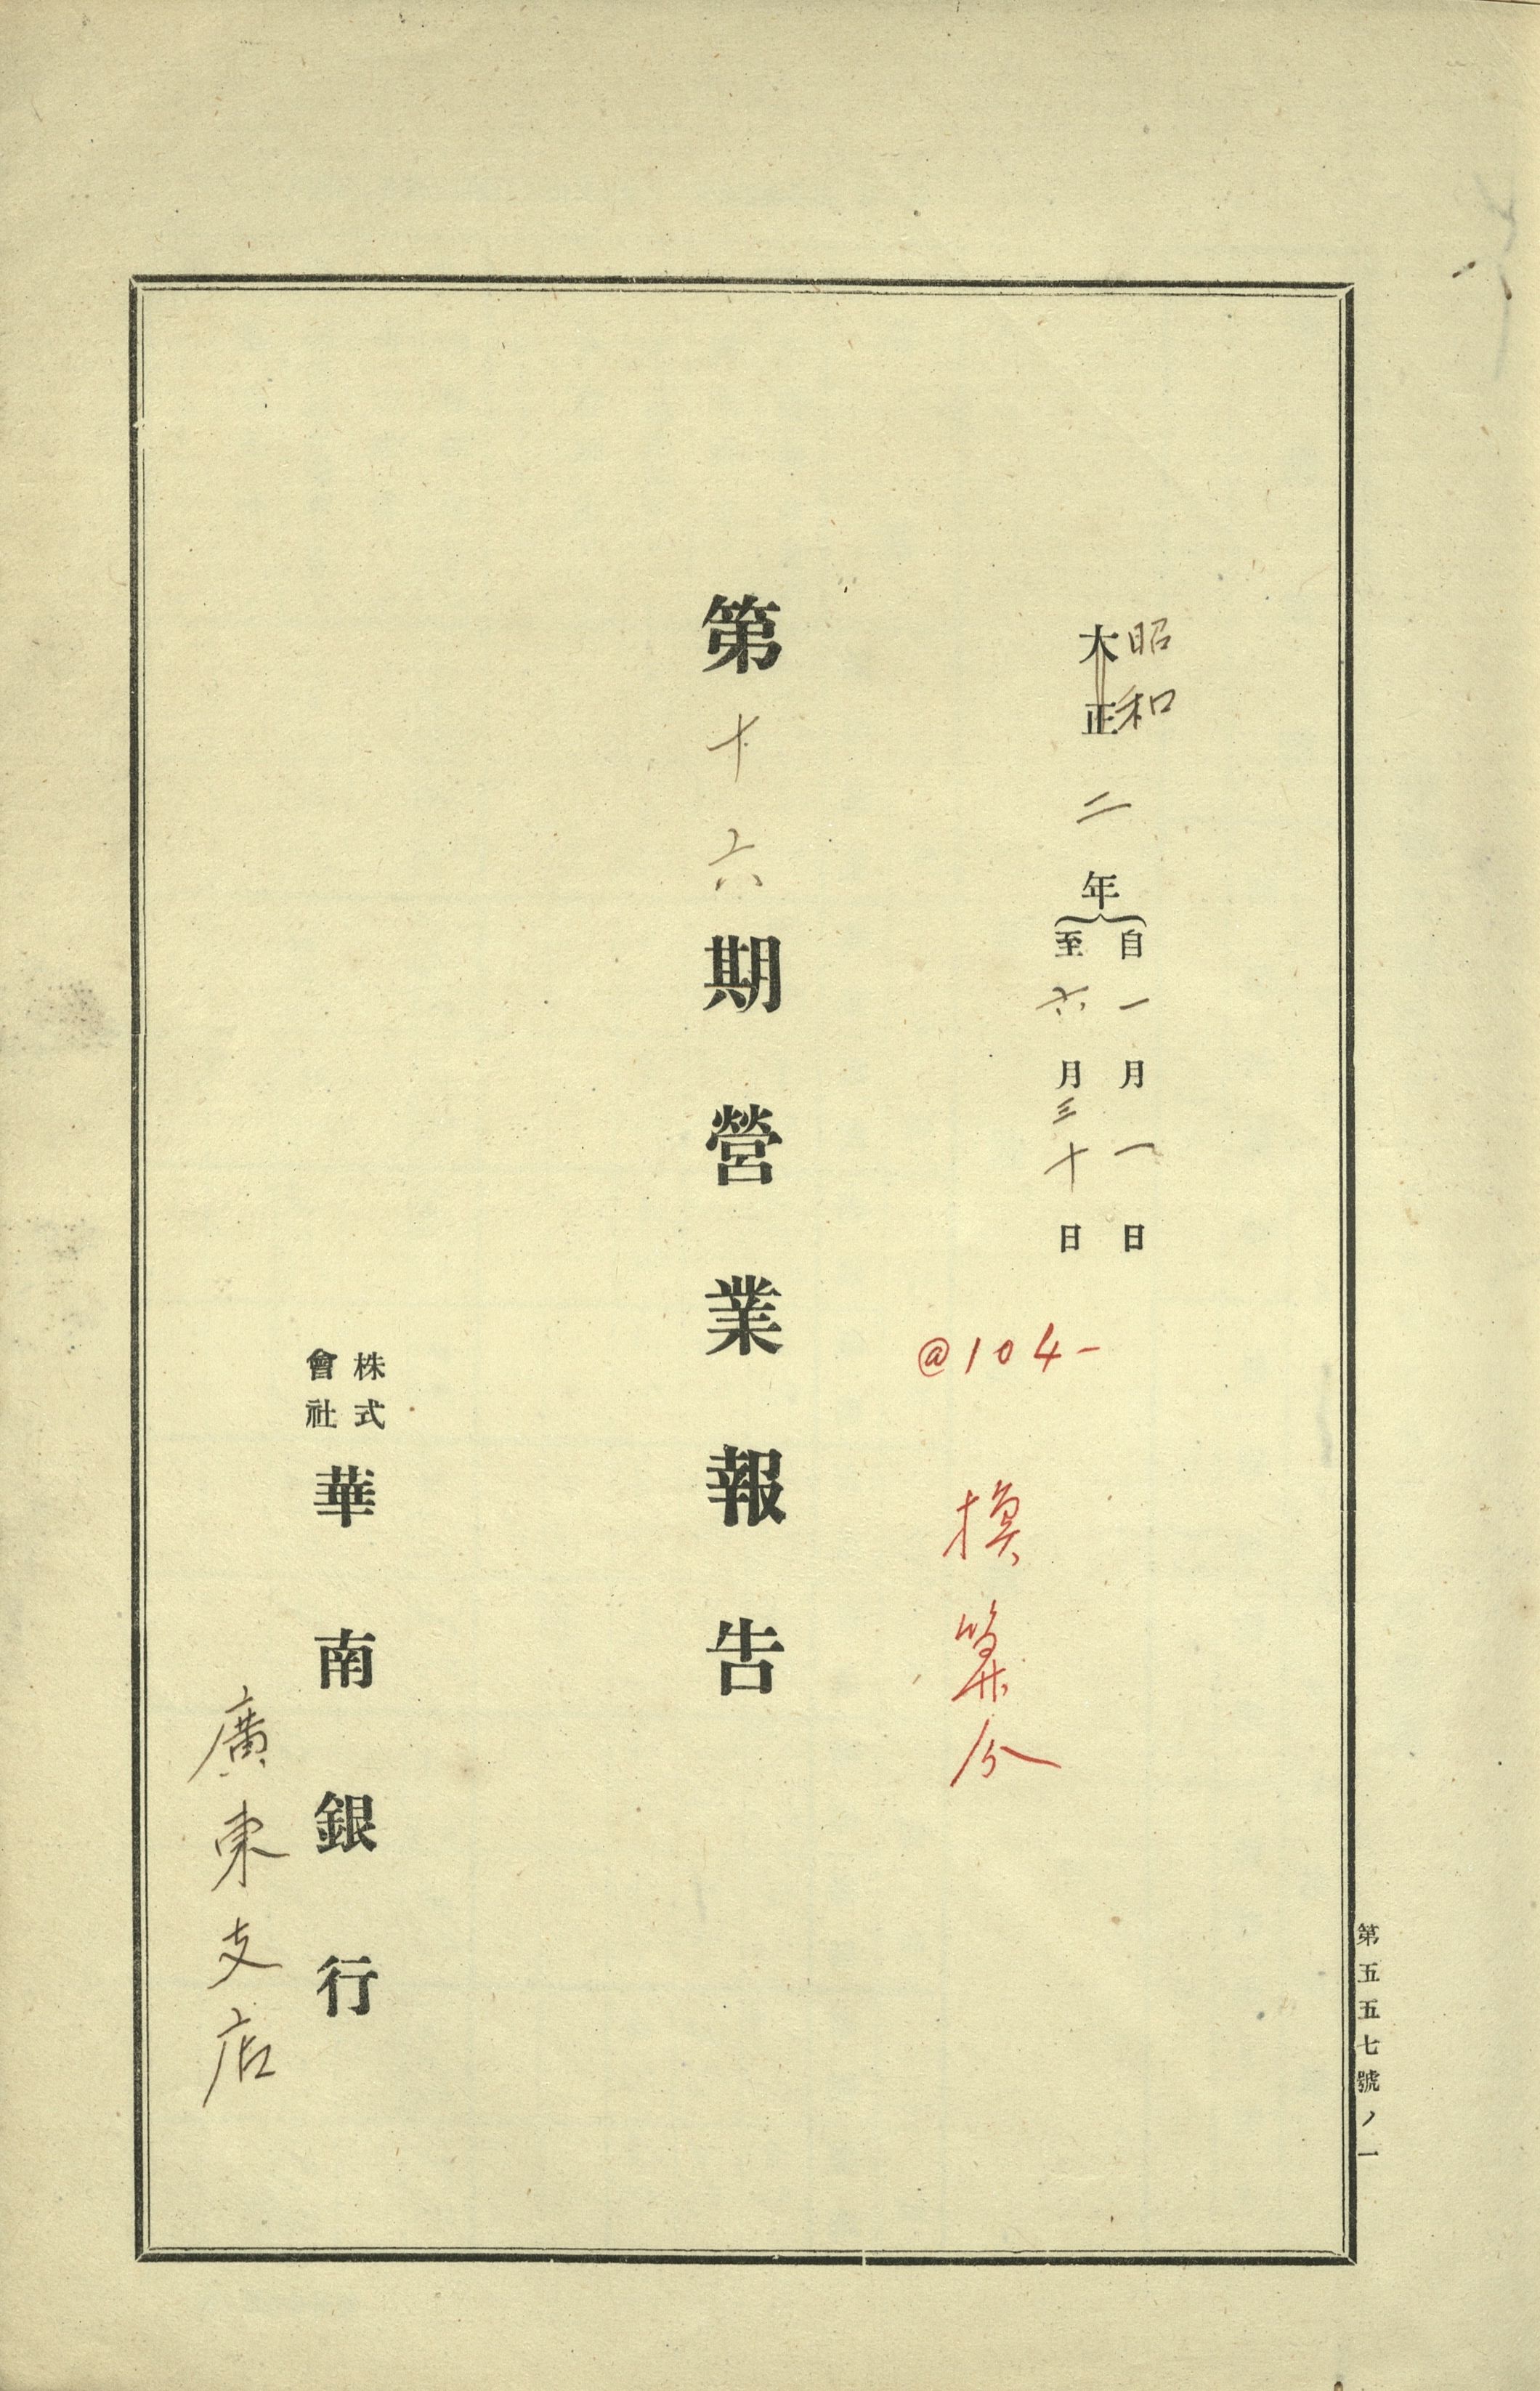 第五五七號ノ一
昭和
大正二年
自一月一日
至六月三十日
@104-
換算分
第十六期營業報告
株式
會社
華南銀行
廣東支店